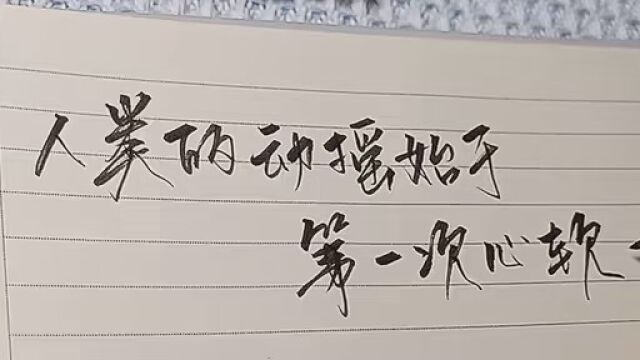 人类的动摇始于
第一次心软